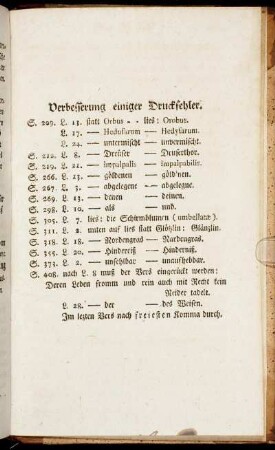 Verbesserung einiger Druckfehler.
S. 209. L. 13. statt Orbus - - lies: Orobus.
L. 17. — Hedysarum — Hedysarum.
L. 24. — untermischt — unvermischt.
S. 212. L. 8. — Dreuser — Drusenthor.
S. 219. L. 21. — impalpalis — Impalpabilis.
S. 266. L. 23. — göldenen — gold'nen.
S. 267. L. 3. — abgelegene - -abgelegne.
S. 269. L. 13. — denen — deinen.
S. 298. L. 10. — als — und.
S. 305. L. 7. lies: die Schirmblumen (umbellatæ).
S. 311. L. 2. unten auf lies statt Glötzlin: Glänzlin.
S. 318. L. 18. — Nordengras — Nardengras.
S. 355. L. 20. — Hindereiß — Hinderniß.
S. 373. L. 2. — unsehlbar — unaufhebbar.
S. 408. nach L. 8 muß der Vers eingerückt werden:
Deren Leben fromm und rein auch mit Recht kein
Neider tadelt.
L. 28. — der — des Weisen.
Im lezten Vers nach freiesten Komma durch.